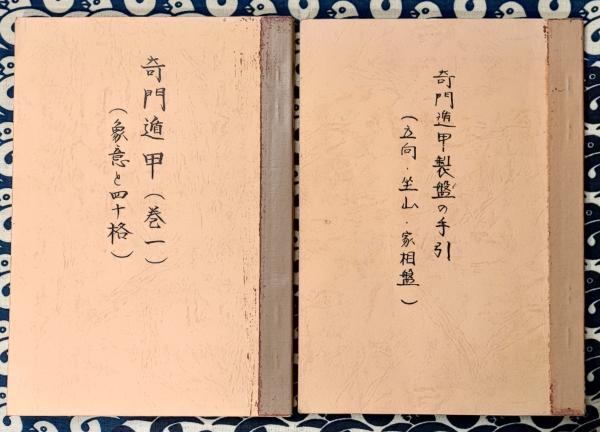 奇門遁甲製盤の手引
（立向・坐山・家相盤）
奇門遁甲（巻一）
（象意と四十格）